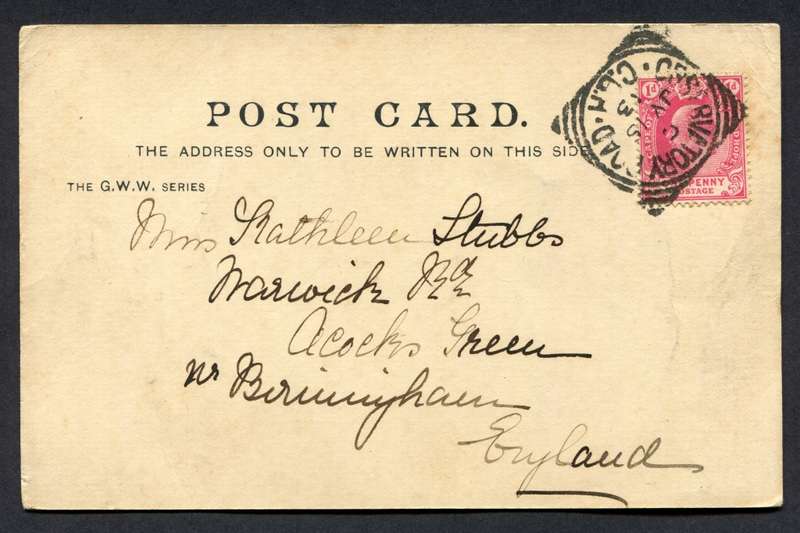 POST CARD.
THE ADDRESS ONLY TO BE WRITTEN ON THIS SIDE
THE G.W.W. SERIES
Miss Kathleen Stubbs
Warwick Rd
Acocks Green
nr Birmingham
England
1d
1d
CAPE OF
HOPE
PENNY
POSTAGE
VICTORIA ROAD · C.G.H ·
JY